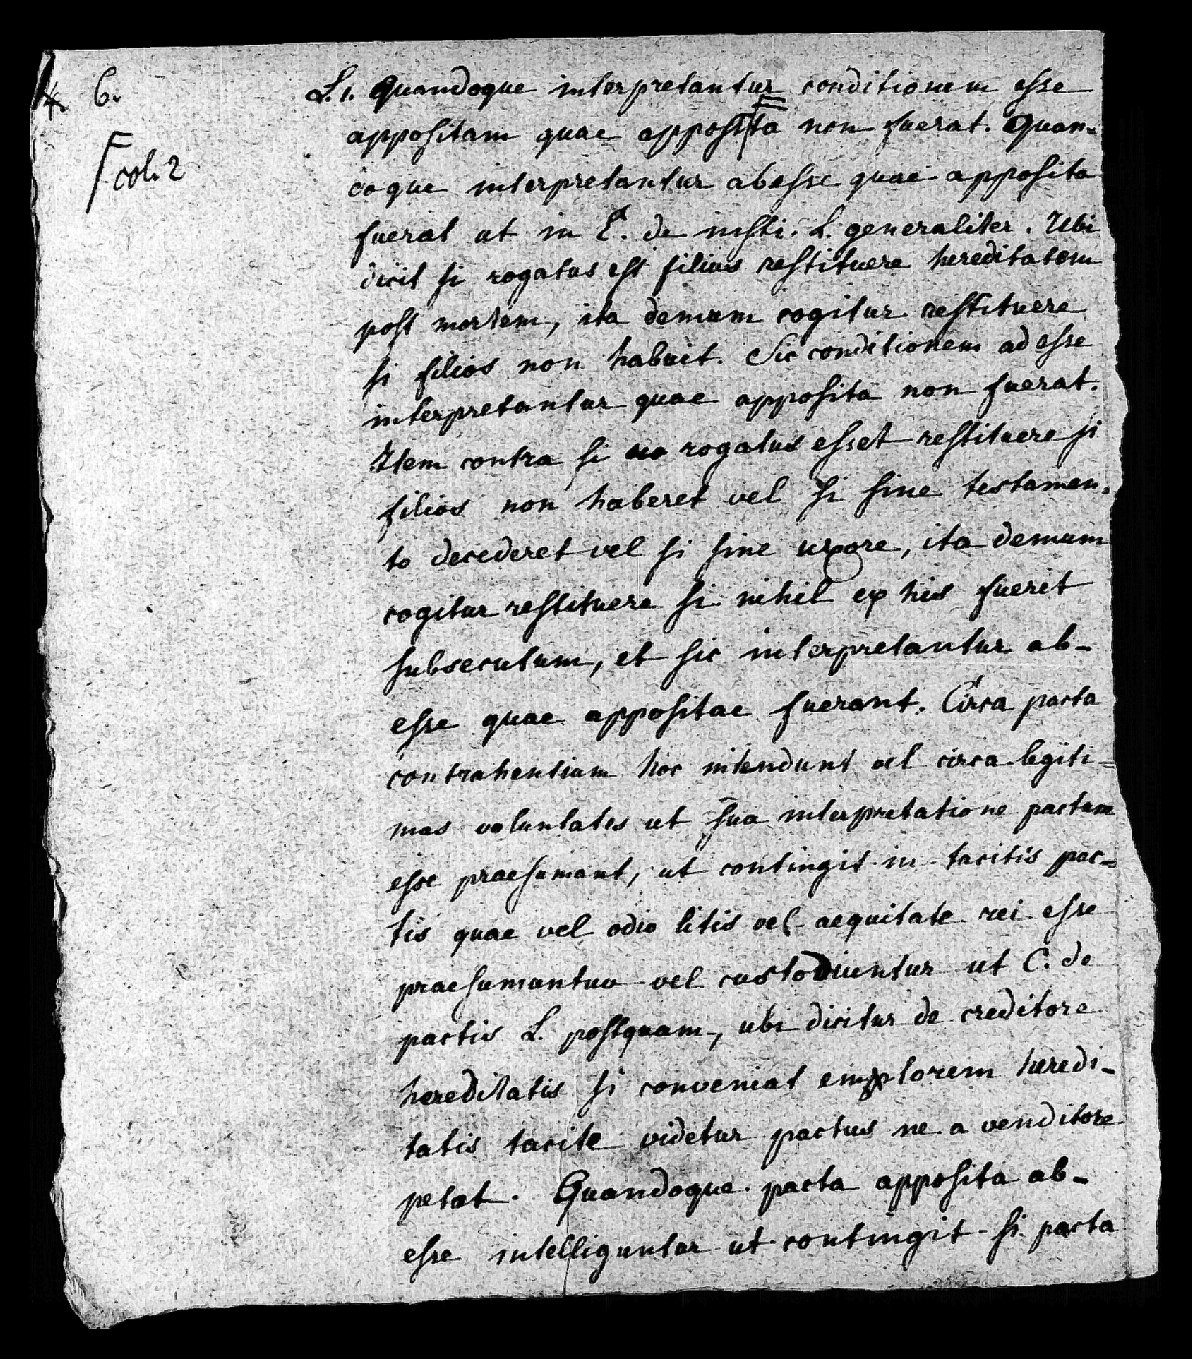 6.
col. 2
L. 1. Quandoque interpretantur conditionem esse
appositam quae apposita non fuerat. Quan-
doque interpretantur abesse quae apposita
fuerat ut in C. de insti. L. generaliter. Ubi
dicit si rogatus est filius restituere hereditatem
post mortem, ita demum cogitur restituere
si filios non habuit. Sic conditionem adesse
interpretantur quae apposita non fuerat.
Item contra si rogatus esset restituere si
filios non haberet vel si sine testamen-
to decederet vel si sine uxore, ita demum
cogitur restituere si nihil ex his fuerit
subsecutum, et sic interpretantur ab-
esse quae appositae fuerant. Circa pacta
contrahentium hoc intendunt vel circa legiti-
mas voluntates ut sua interpretatione pactum
esse praesumant, ut contingit in tacitis pac-
tis quae vel odio litis vel aequitate rei esse
praesumantur vel custodiuntur ut C. de
pactis L. postquam, ubi dicitur de creditore
hereditatis si conveniat emptorem heredi-
tatis tacite videtur pactus ne a venditore
petat. Quandoque pacta apposita ab-
esse intelliguntur ut contingit si pacta